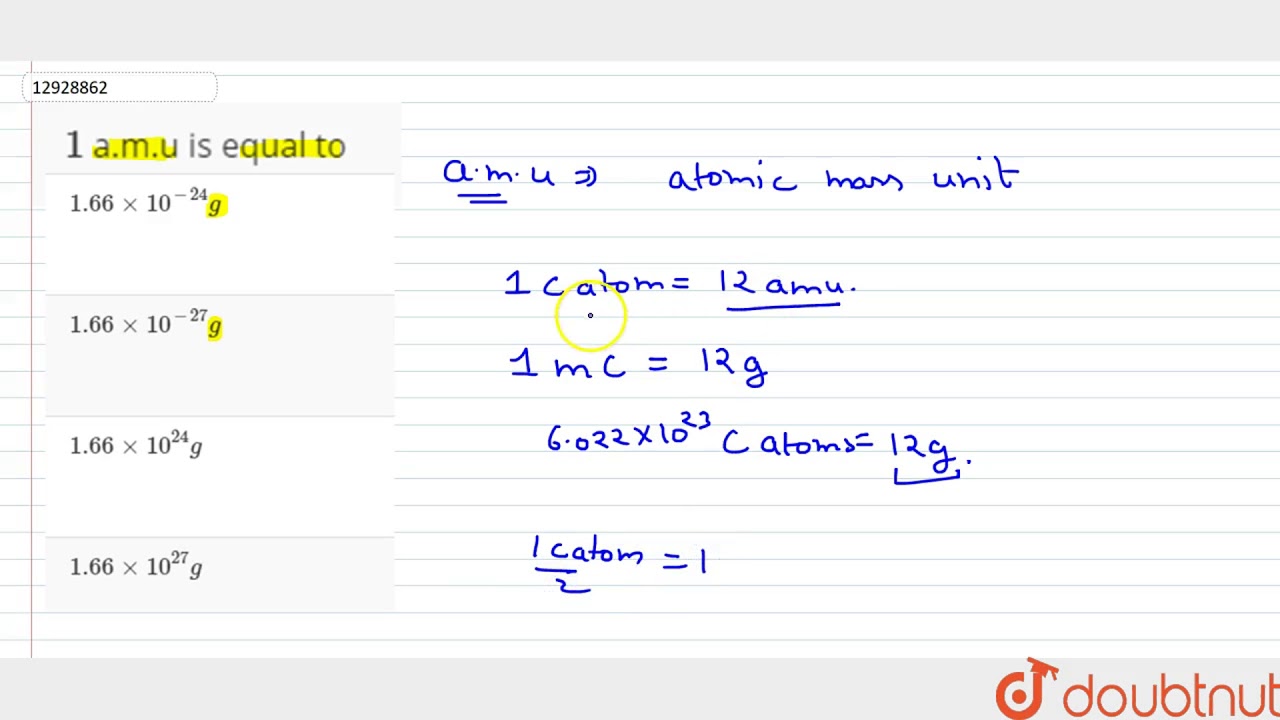 12928862
1 a.m.u is equal to
1.66 × 10⁻²⁴g
1.66 × 10⁻²⁷g
1.66 × 10²⁴g
1.66 × 10²⁷g
a.m.u ⇒ atomic mass unit
1 C atom = 12 amu.
1 m C = 12g
6.022×10²³ C atoms = 12g.
1 C atom = 1
2
doubtnut